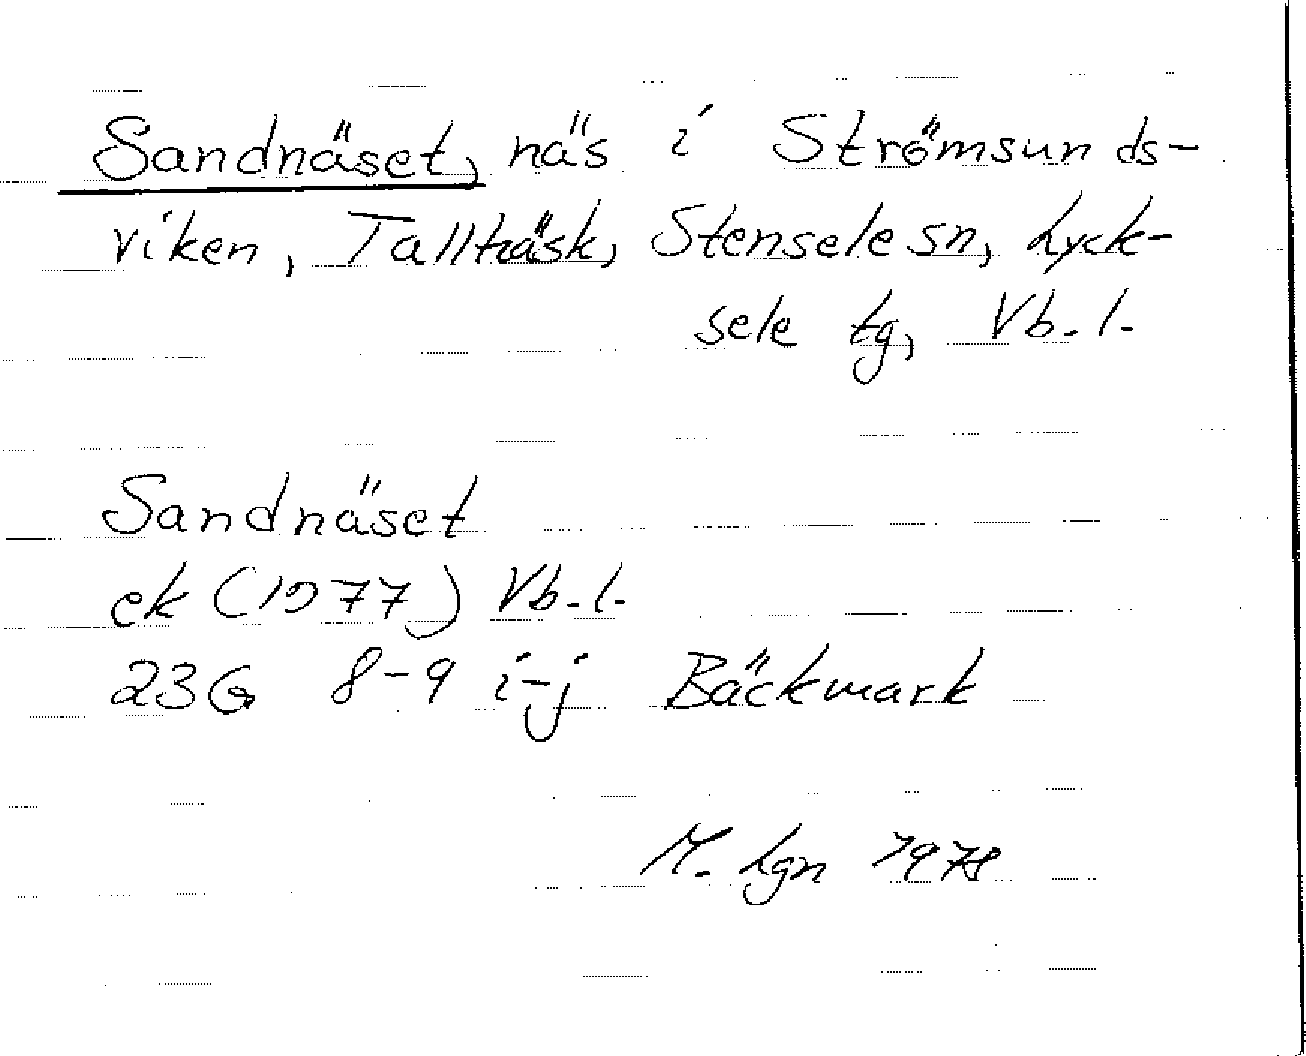 Sandnäset, näs i Strömsunds-
viken, Tallträsk, Stensele sn, Lyck-
sele tg, Vb. l.
Sandnäset
ek (1977) Vb. l.
23G 8-9 i-j Bäckmark
M. Lgn 1978